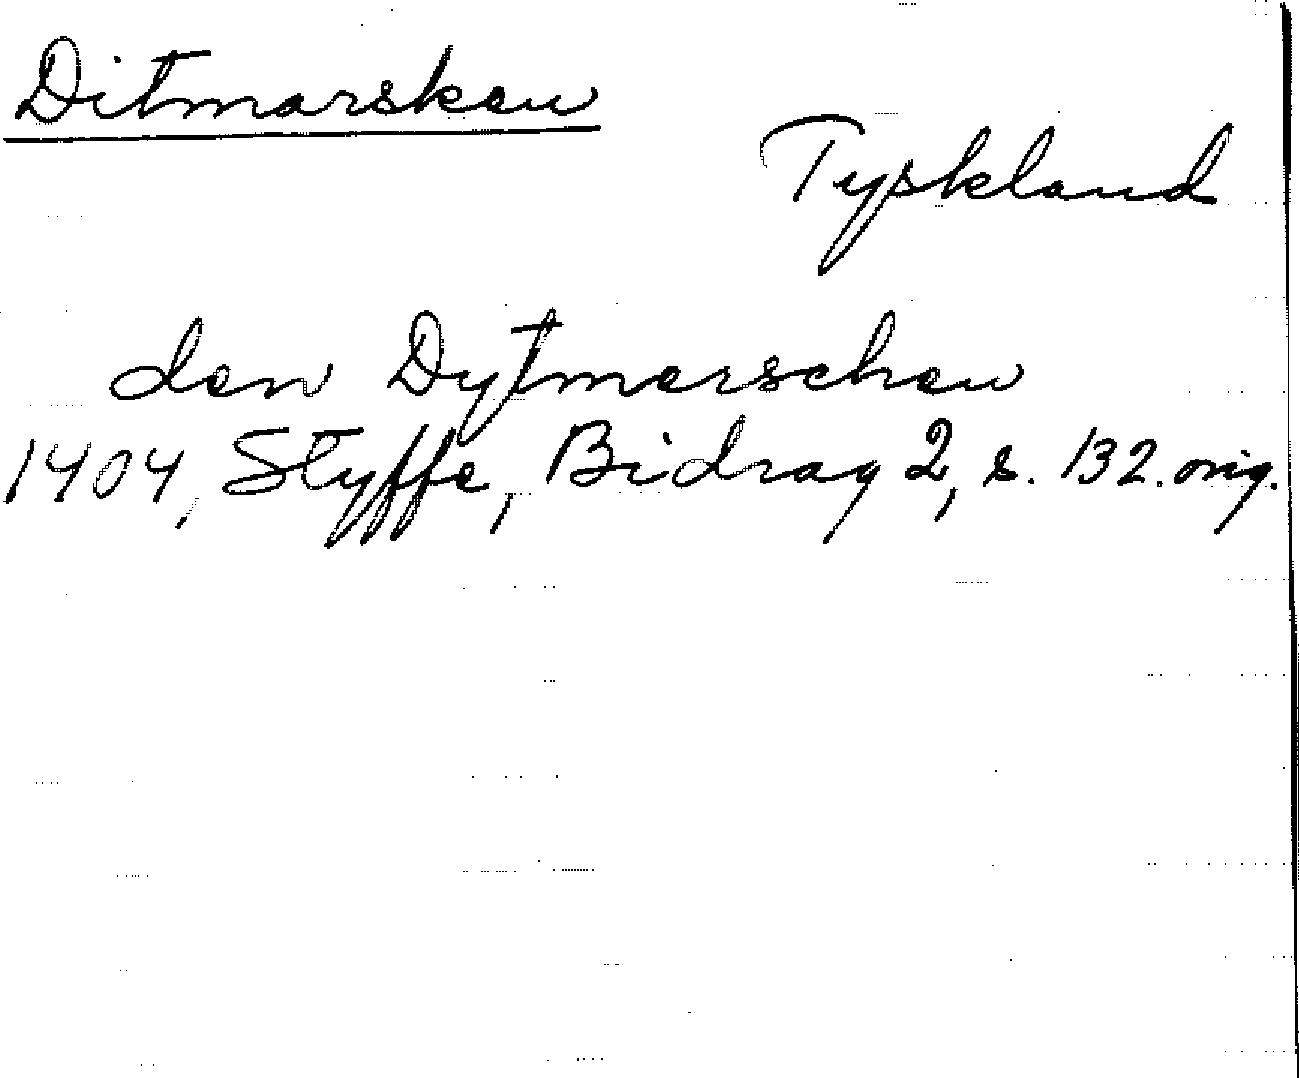 Ditmarsken
Tyskland
den Dytmerschen
1404, Styffe, Bidrag 2, s. 132. orig.